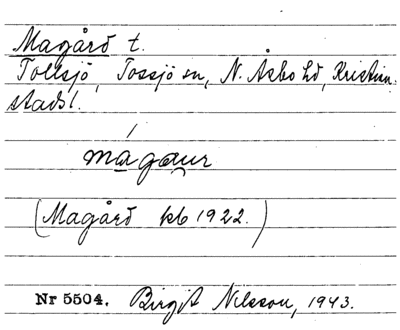 Magård t.
Tollsjö, Tossjö sn, N. Åsbo hd, Kristian-
stads l.
mágaur
(Magård kb 1922.)
Nr 5504. Birgit Nilsson, 1943.